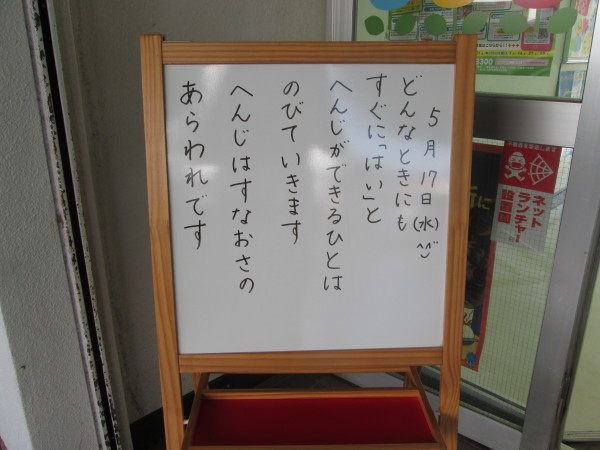 5月17日(水)^^
どんなときにも
すぐに「はい」と
へんじができるひとは
のびていきます
へんじはすなおさの
あらわれです
ネット
ランチャー
設置園